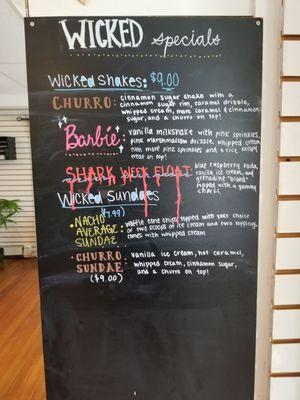 WICKED specials
Wicked Shakes: $9.00
CHURRO: cinnamon sugar shake with a
cinnamon sugar rim, caramel drizzle,
whipped cream, more caramel & cinnamon
sugar, and a churro on top!
Barbie: vanilla milkshake with pink sprinkles,
pink marshmallow drizzle, whipped cream
more pink sprinkles and a rice krispy
treat on top!
SHARK WEEK FLOAT: blue raspberry soda,
vanilla ice cream, and
grenadine "blood"
topped with a gummy
shark!
Wicked Sundaes
($7.99)
NACHO AVERAGE SUNDAE: waffle cone chips topped with your choice
of two scoops of ice cream and two toppings,
comes with whipped cream
CHURRO SUNDAE ($9.00): vanilla ice cream, hot caramel,
whipped cream, cinnamon sugar,
and a churro on top!